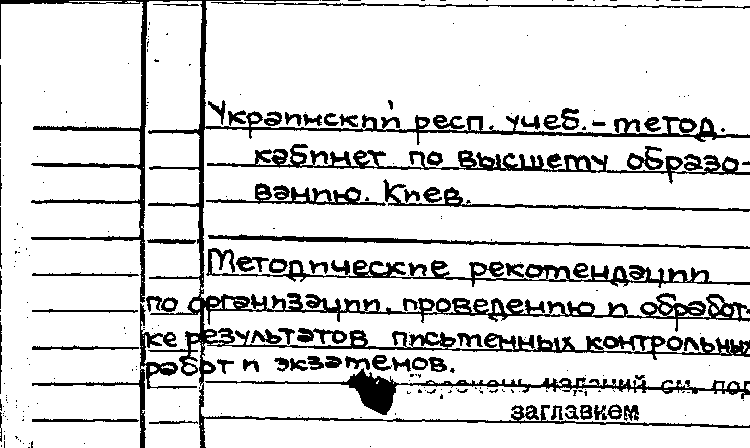 Украинский респ. учеб.-метод.
кабинет по высшему образо-
ванию. Киев.
Методические рекомендации
по организации, проведению и обработ-
ке результатов письменных контрольных
работ и экзаменов.
Перечень изданий см. под
заглавием